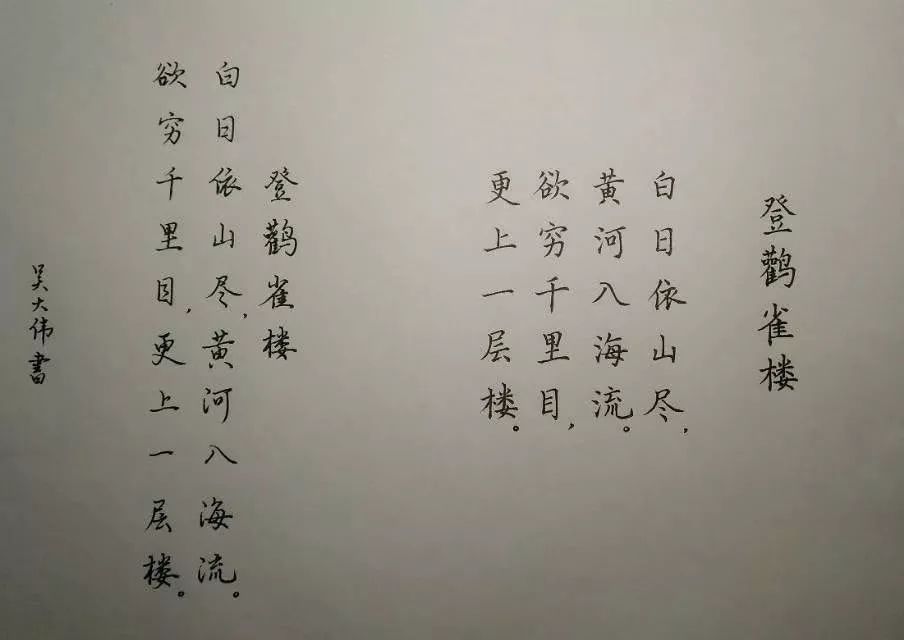 登鹳雀楼
白日依山尽，
黄河入海流。
欲穷千里目，
更上一层楼。
登鹳雀楼
白日依山尽，黄河入海流。
欲穷千里目，更上一层楼。
吴大伟书